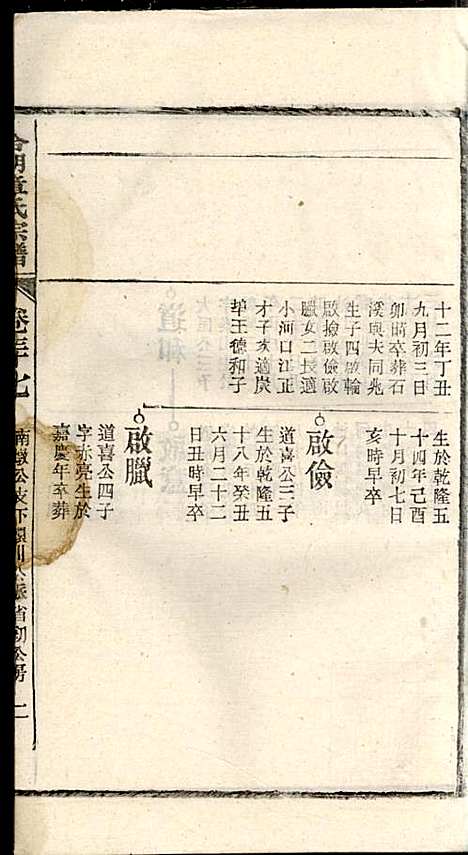 十二年丁丑
九月初三日
卯時卒葬石
溪與夫同兆
生子四啟輪
啟撿啟儉啟
臘女二長適
小河口江正
才子次適炭
埠王德和子
生於乾隆五
十四年己酉
十月初七日
亥時卒
啟儉
道喜公三子
生於乾隆五
十八年癸丑
六月二十二
日丑時早卒
啟臘
道喜公四子
字亦亮生於
嘉慶年卒葬
湖童氏宗譜